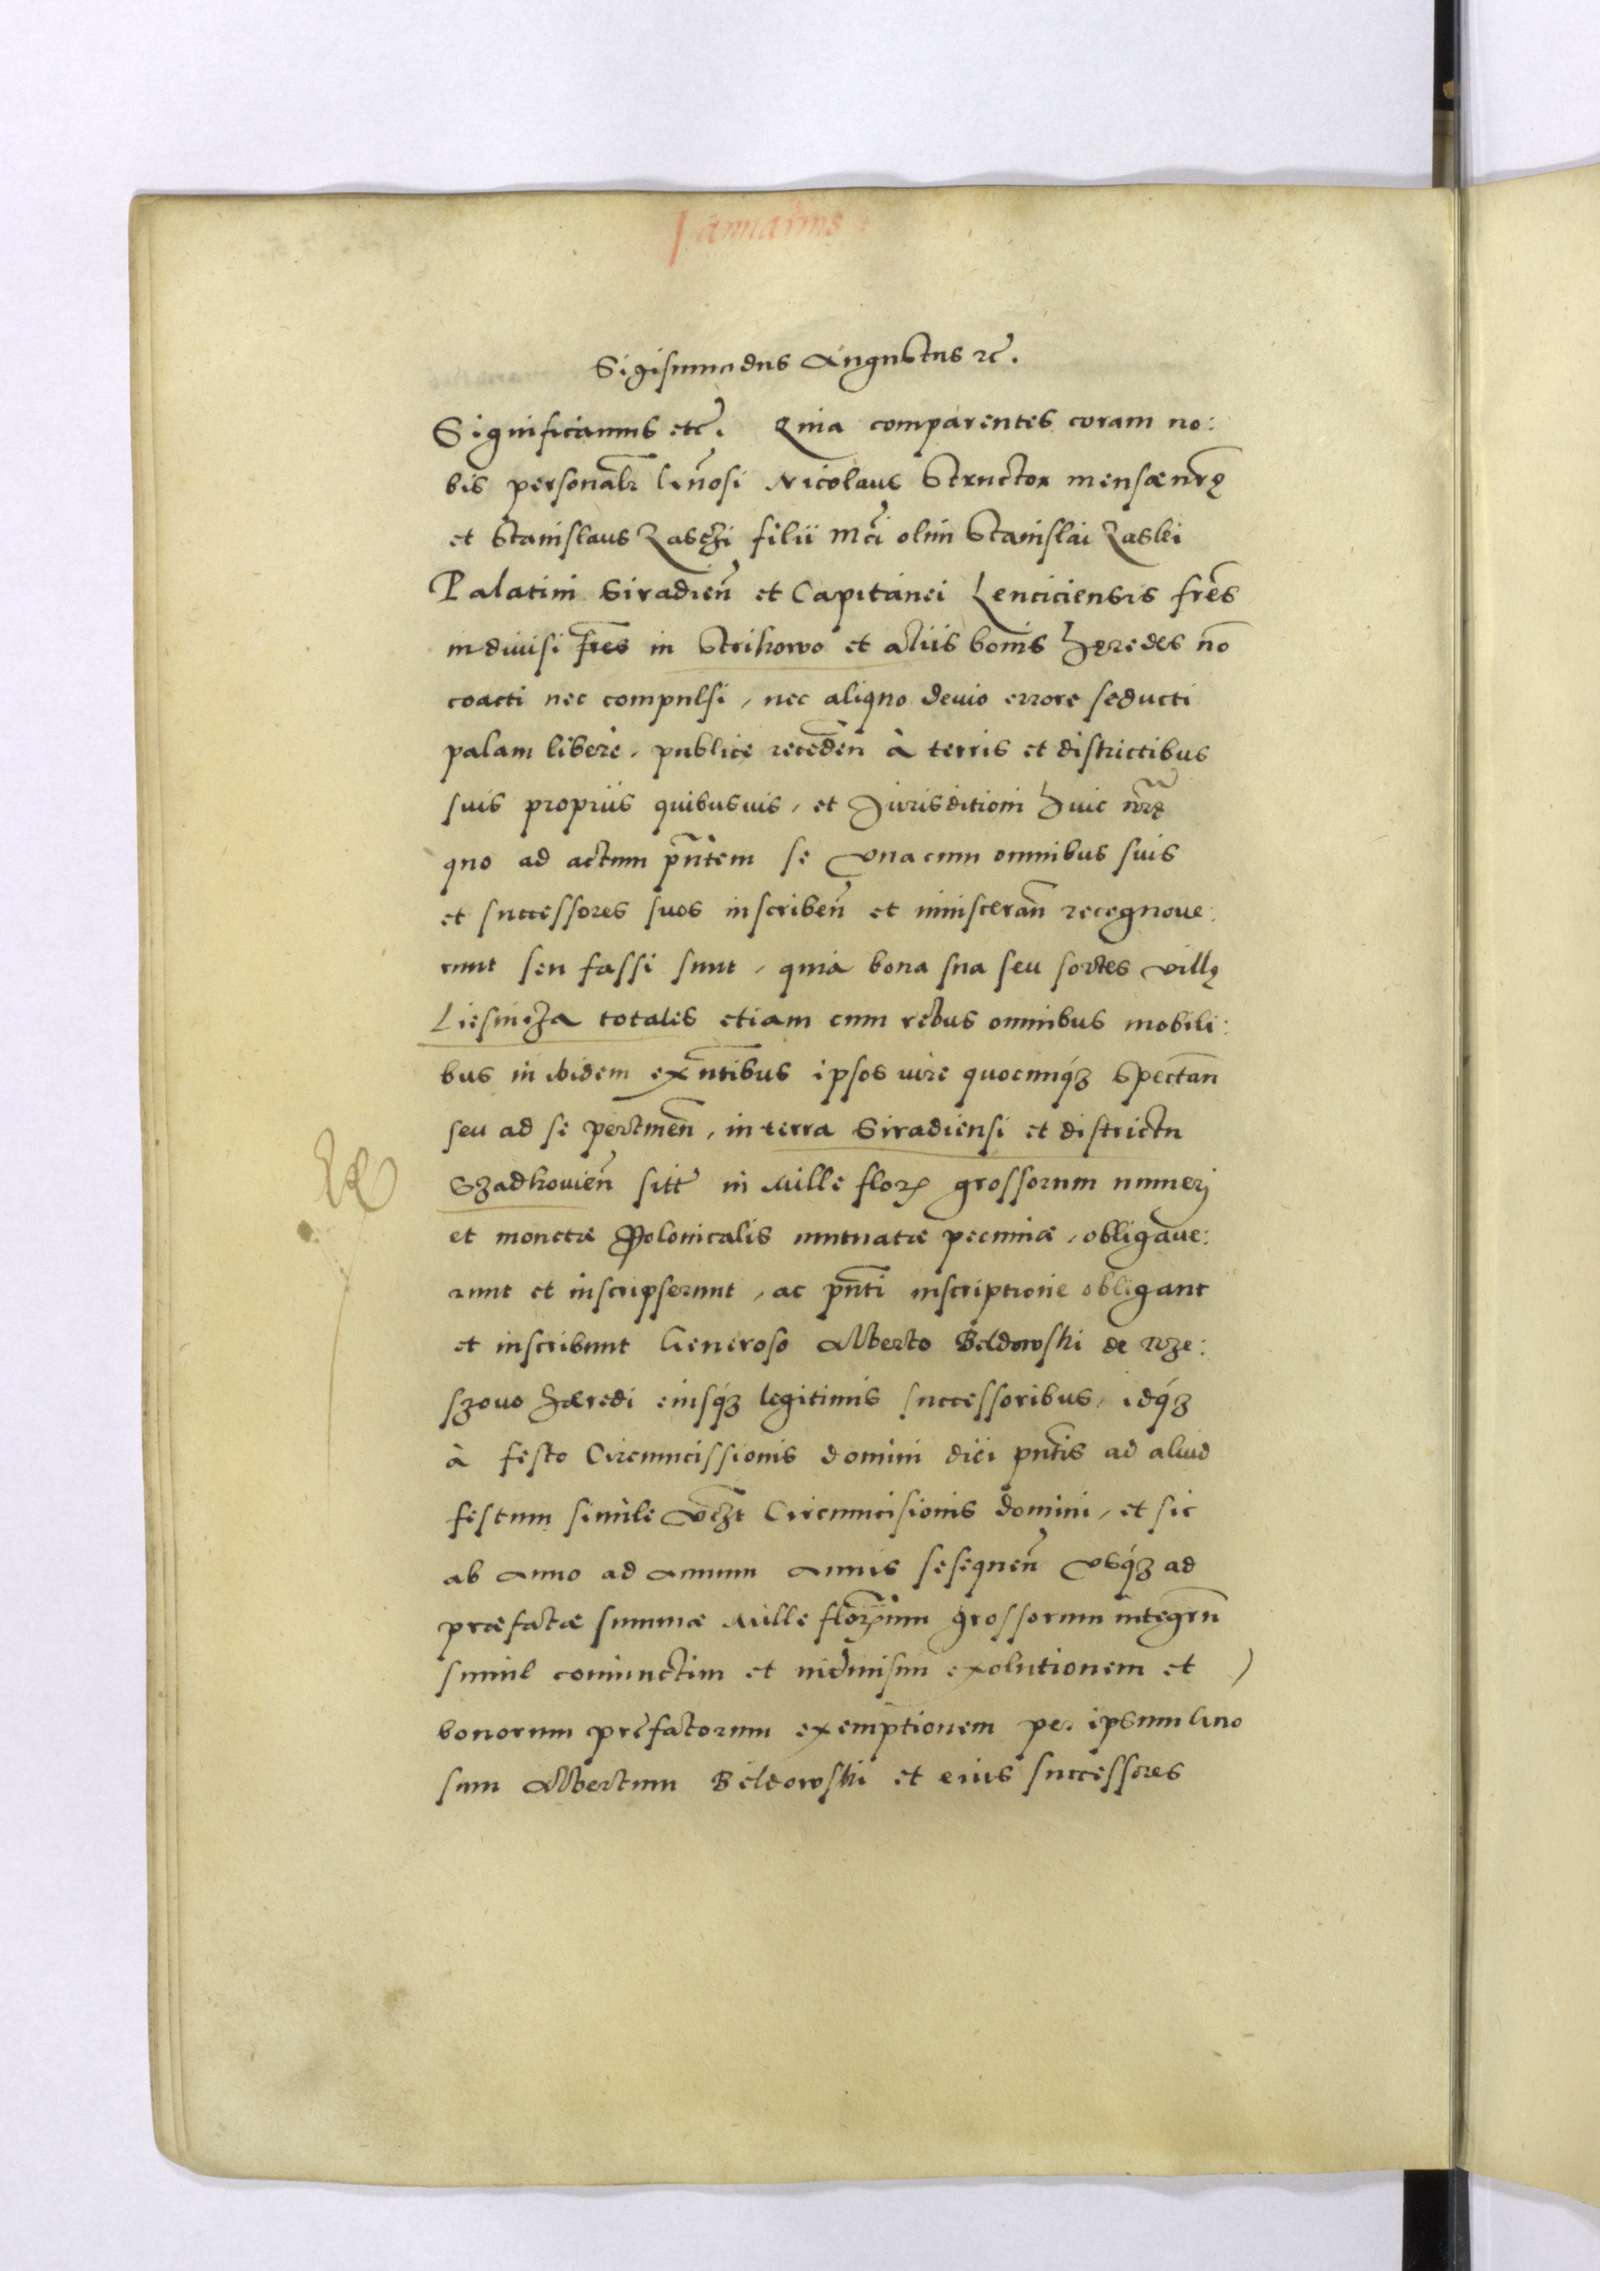 Januarius
Sigismundus Augustus etc̃.
Significamus etc̃. Quia comparentes coram no:
bis personalr̃ Gñosi Nicolaus Structor mensæ nr̃ę
et Stanislaus Laszki filii Mci olim Stanislai Laski
Palatini Siradien̄ et Capitanei Lenciciensis fres
indivisi fres in Strikowo et aliis bonis hęredes nō
coacti nec compulsi, nec aliquo devio errore seducti
palam libere, publice receden̄ à terris et districtibus
suis propriis quibusvis, et Jurisditioni huic nr̃ę
quo ad actum pñtem se vna cum omnibus suis
et successores suos inscriben̄ et inniscerañ recognoue:
runt seu fassi sunt, quia bona sua seu sortes villę
Liesnicza totales etiam cum rebus omnibus mobili:
bus in ibidem exñtibus ipsos iure quocunqz spectañ
seu ad se pertineñ, in terra Siradiensi et districtu
Szadkovieñ sitt̃ in Mille flor̃ grossorum numeri
et monetæ Polonicalis mutuatæ pecuniæ, obligave:
runt et inscripserunt, ac pñti inscriptione obligant
et inscribunt Generoso Alberto Beldowski de Rze:
szovo hæredi eiusqz legitimis successoribus, idqz
à festo Circumcissionis domini diei pñtis ad aliud
festum simile vczt Circumcisionis domini, et sic
ab anno ad annum annis sesequeñ vsqz ad
præfatæ summæ Mille florenum grossorum integrũ
simul coniunctim et indivisim exolutionem et
bonorum prefatorum exemptionem per ipsum Gno
sum Albertum Beldowski et eius successores